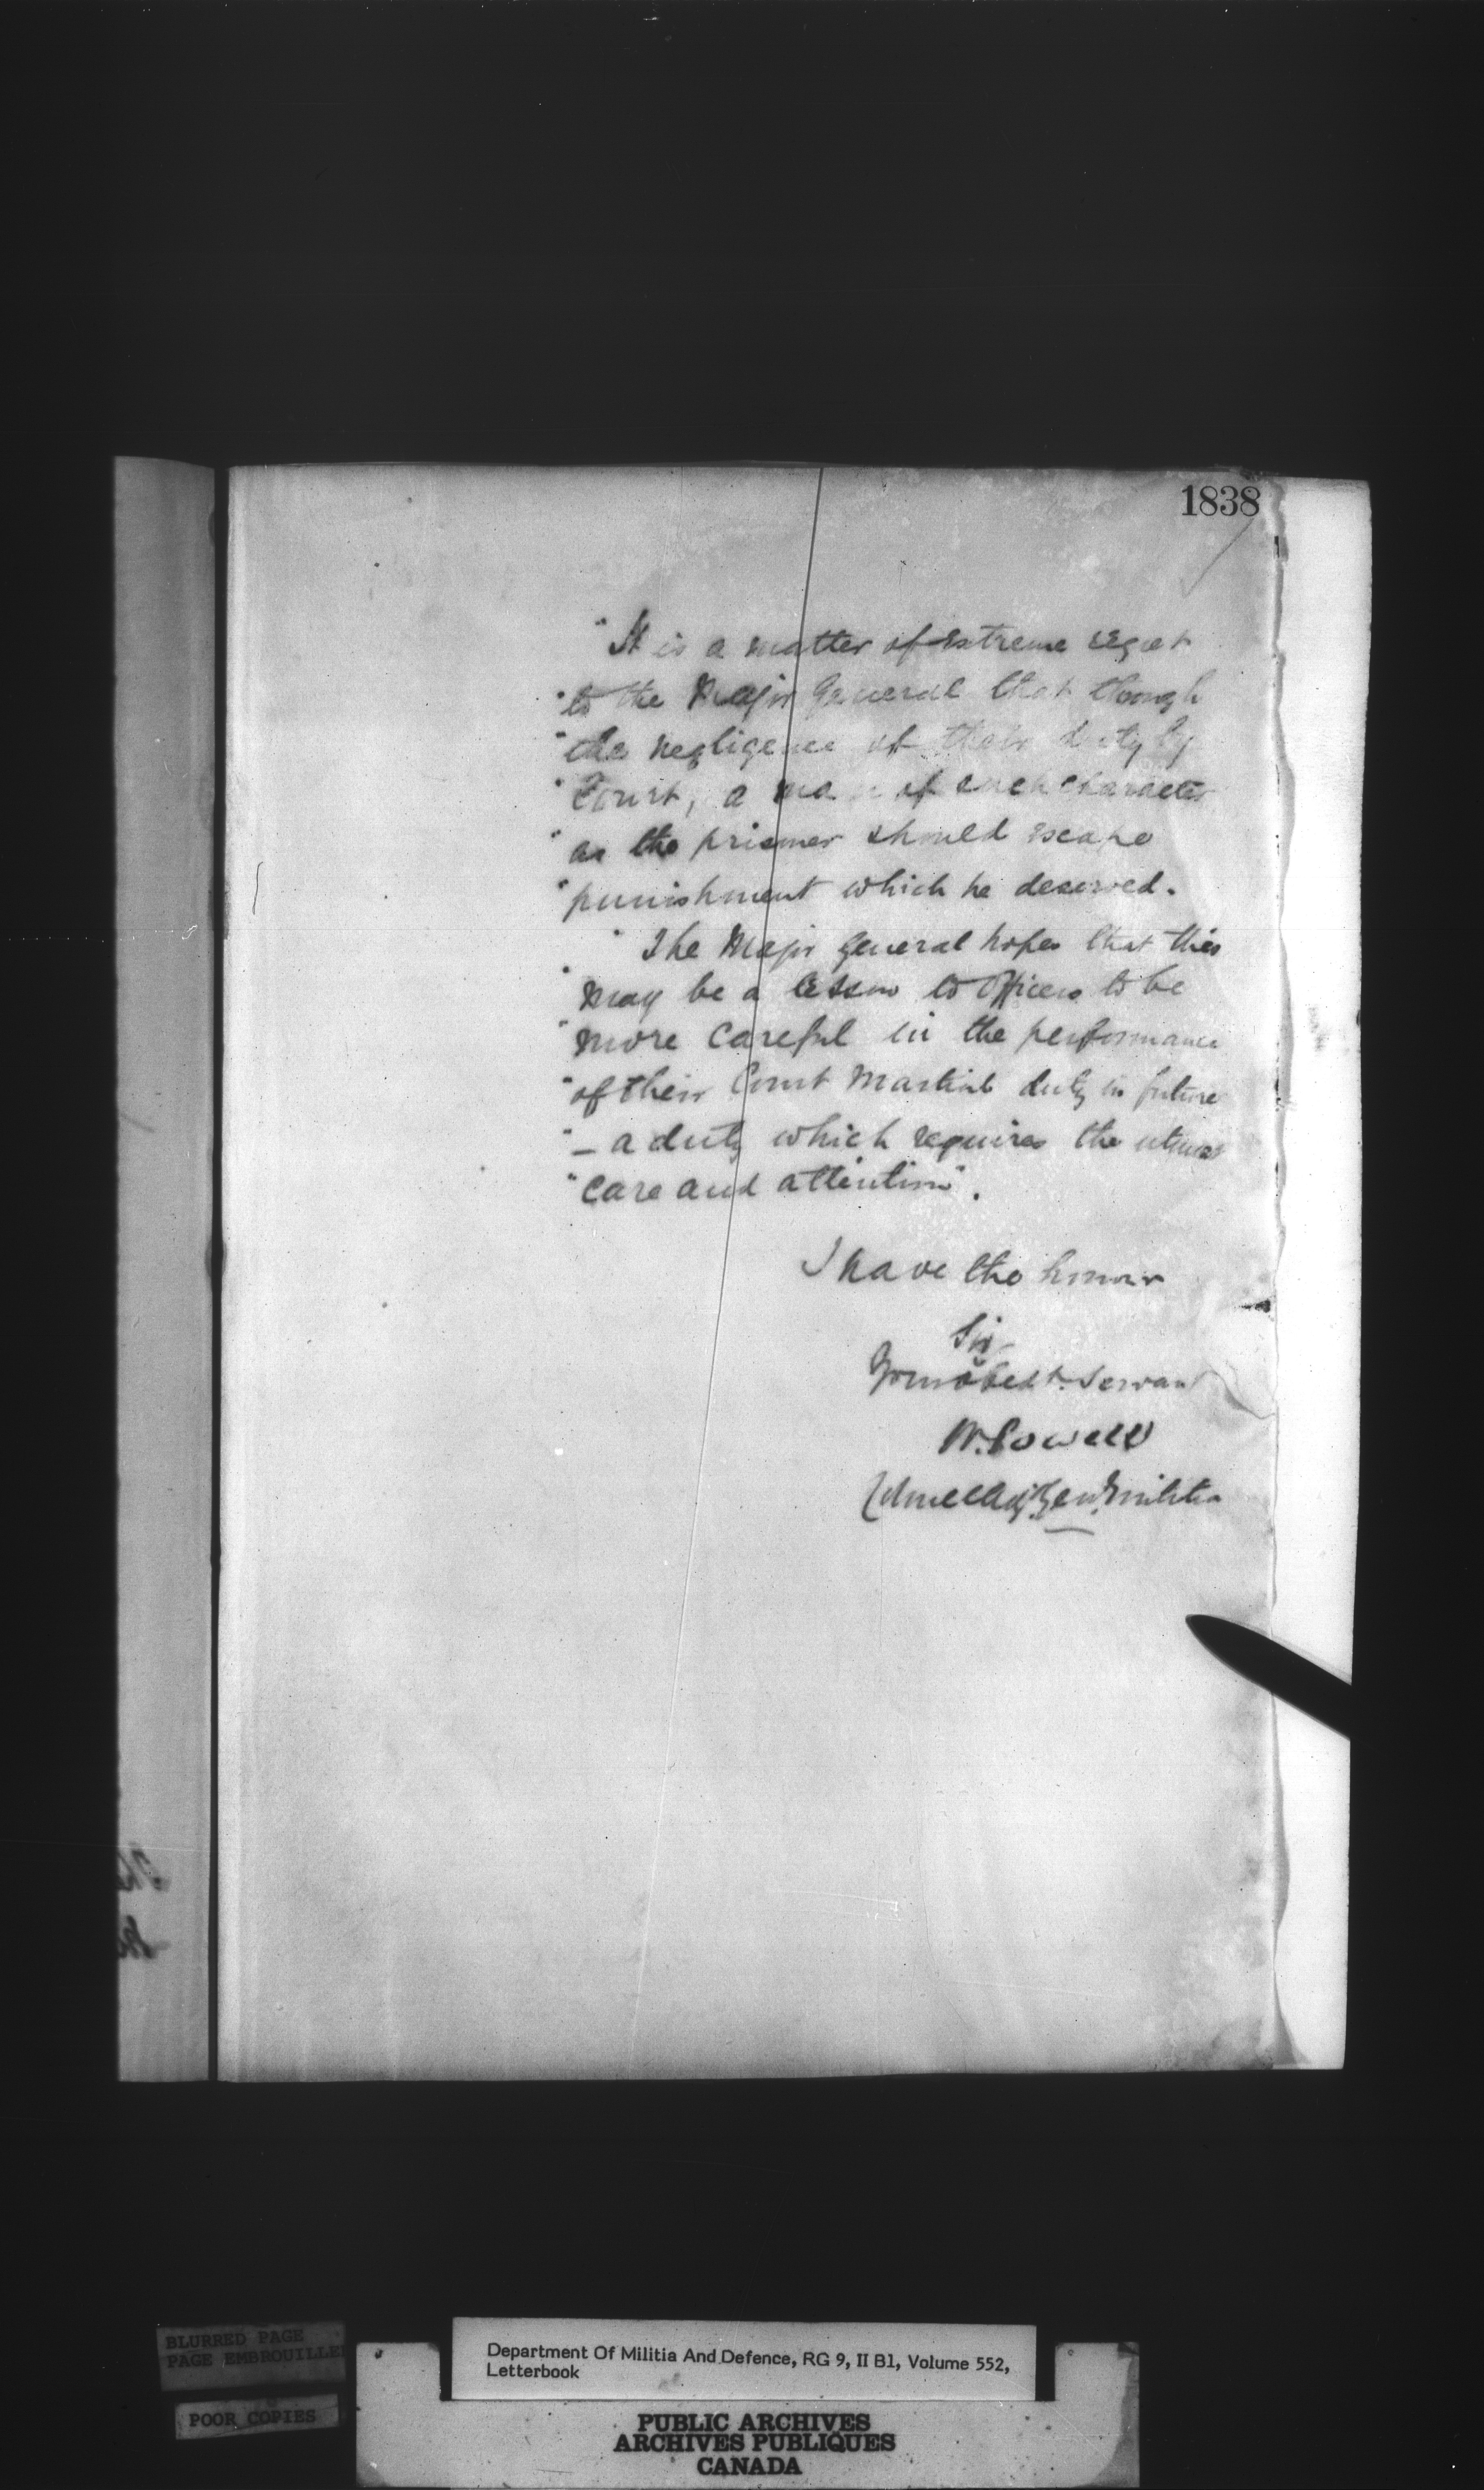 1838
"It is a matter of extreme regret
"to the Major General that though
"the negligence of their duty by
"Court, a man of such character
"as the prisoner should escape
"punishment which he deserved.
" The Major General hopes that this
"may be a lesson to Officers to be
"more careful in the performance
"of their Court Martial duty in future
"– a duty which requires the utmost
"care and attention".
I have the honour
Sir
Your obedt. Servant
W. Powell
Colonel Adj. Gen. Militia
BLURRED PAGE
PAGE EMBROUILLEE
POOR COPIES
Department Of Militia And Defence, RG 9, II B1, Volume 552,
Letterbook
PUBLIC ARCHIVES
ARCHIVES PUBLIQUES
CANADA